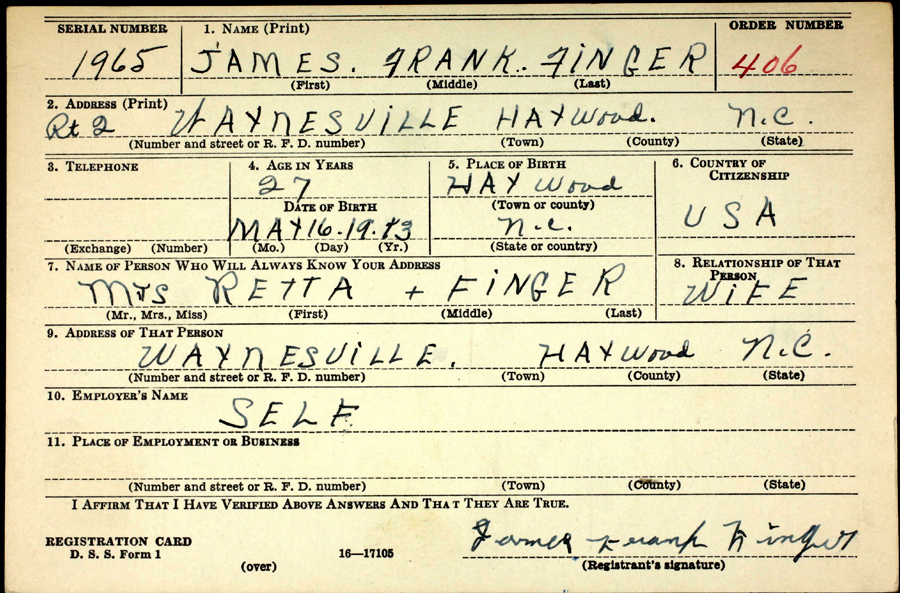 SERIAL NUMBER 1. NAME (Print) ORDER NUMBER
1965 JAMES. FRANK. FiNGER 406
(First) (Middle) (Last)
2. ADDRESS (Print)
Rt 2 WAYNESVILLE HAYWood. N.C.
(Number and street or R. F. D. number) (Town) (County) (State)
3. TELEPHONE 4. AGE IN YEARS 5. PLACE OF BIRTH 6. COUNTRY OF CITIZENSHIP
27 HAY Wood
DATE OF BIRTH (Town or county) USA
MAY 16. 19.13 N.C.
(Exchange) (Number) (Mo.) (Day) (Yr.) (State or country)
7. NAME OF PERSON WHO WILL ALWAYS KNOW YOUR ADDRESS 8. RELATIONSHIP OF THAT PERSON
Mrs RETTA + FiNGER WiFE
(Mr., Mrs., Miss) (First) (Middle) (Last)
9. ADDRESS OF THAT PERSON
WAYNESVILLE. HAYWood N.C.
(Number and street or R. F. D. number) (Town) (County) (State)
10. EMPLOYER'S NAME
SELF
11. PLACE OF EMPLOYMENT OR BUSINESS
(Number and street or R. F. D. number) (Town) (County) (State)
I AFFIRM THAT I HAVE VERIFIED ABOVE ANSWERS AND THAT THEY ARE TRUE.
REGISTRATION CARD James Frank Finger
D. S. S. Form 1 16—17105
(over) (Registrant's signature)